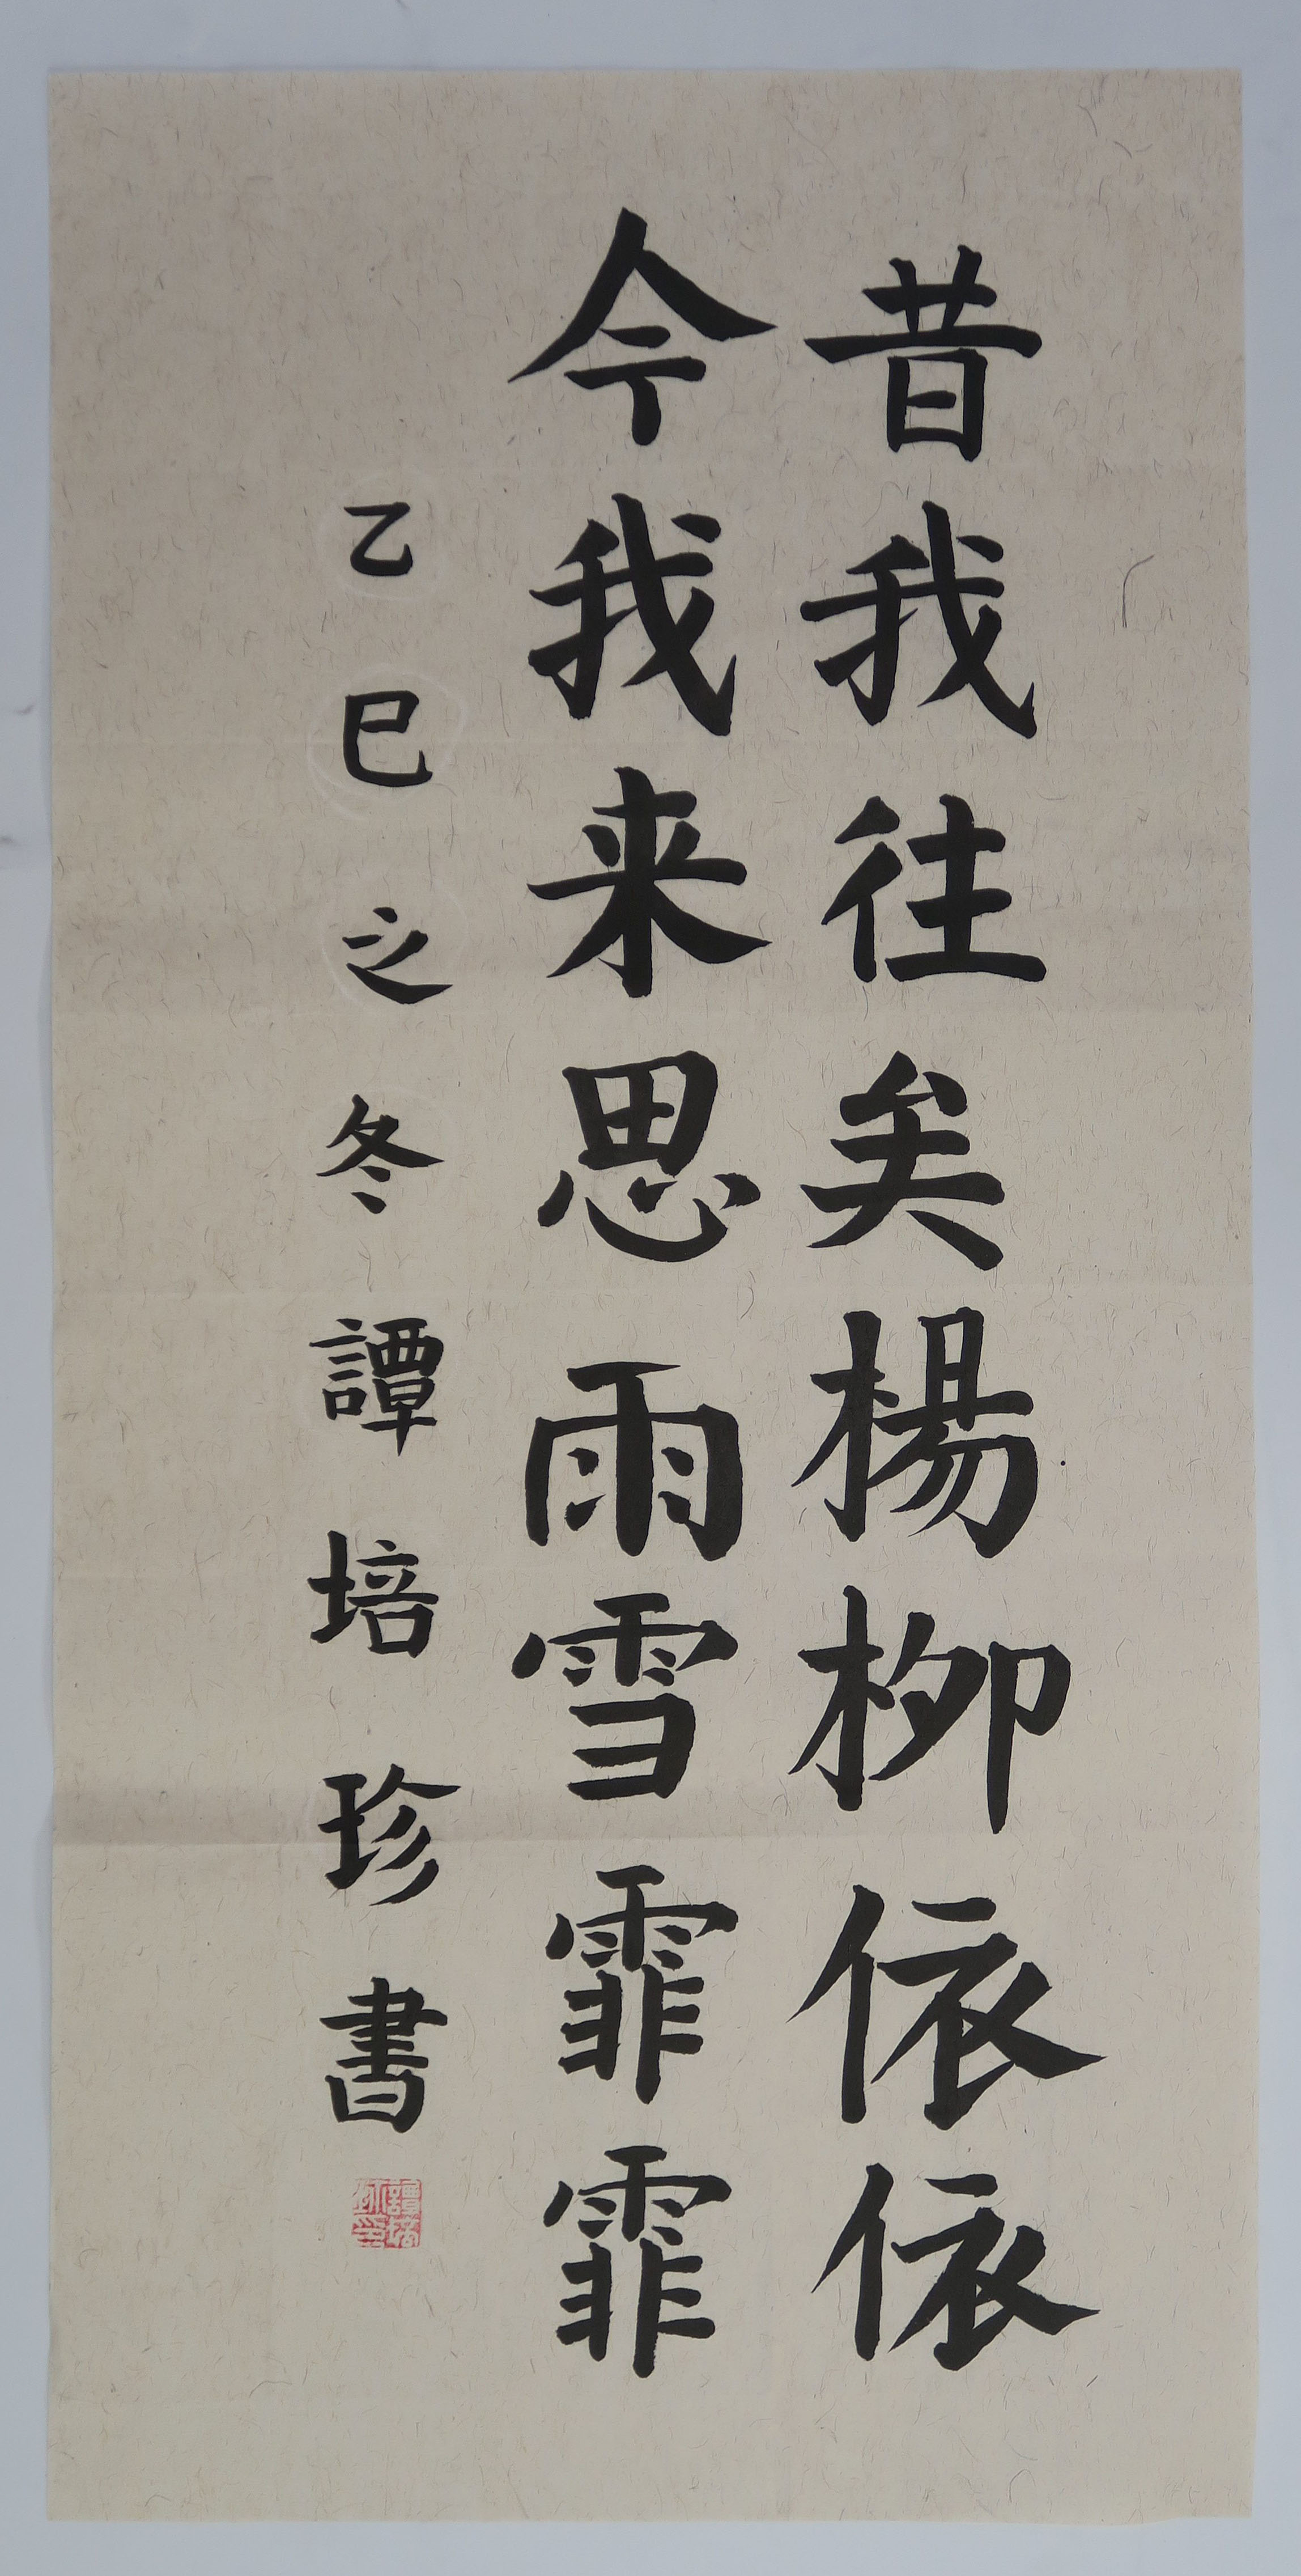 昔我往矣楊柳依依
今我来思雨雪霏霏
乙巳之冬譚培珍書
譚培珍印